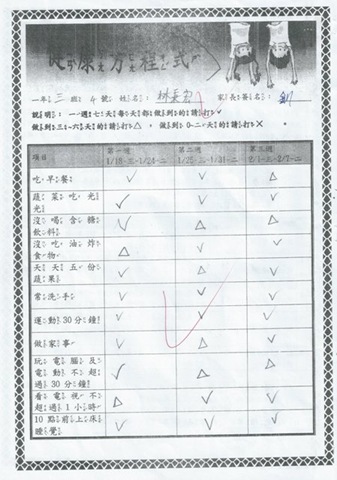 健康方程式
一年三班4號姓名:林秉 家長簽名:
說明:一週七天每天都做到的請打✓
做到三~六天的請打△, 做到0~二天的請打×。
項目 第一週 1/18-三~1/24-二 第二週 1/25-三~1/31-二 第三週 2/1-三~2/7-二
吃早餐 ✓ ✓ △
蔬菜吃光光 ✓ ✓ ✓
沒喝含糖飲料 ✓ △ △
沒吃油炸食物 △ ✓ ✓
天天五份蔬果 ✓ △ ✓
常洗手 ✓ ✓ ✓
運動30分鐘! ✓ ✓ ✓
做家事 ✓ △ ✓
玩電腦及電動不超過30分鐘! ✓ △ △
看電視不超過1小時 △ ✓ △
10點前上床睡覺 ✓ ✓ ✓